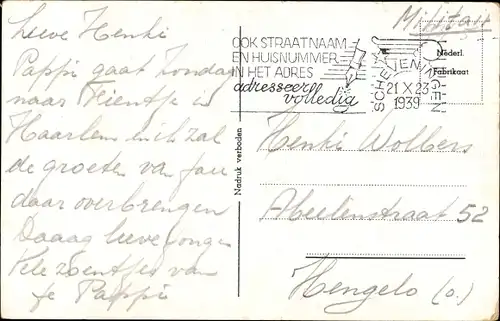 Lieve Henki
Pappi gaat Zondag
naar Tientje in
Haarlem en ik zal
de groeten van jou
daar overbrengen
Daaag lieve jongen
Vele zoentjes van
je Pappi
Militair
OOK STRAATNAAM
EN HUISNUMMER
IN HET ADRES
adresseert
volledig
SCHEVENINGEN
21 X 23
1939
Nederl.
Fabrikaat
Nadruk verboden
Henki Wolbers
Abeelenstraat 52
Hengelo (O.)